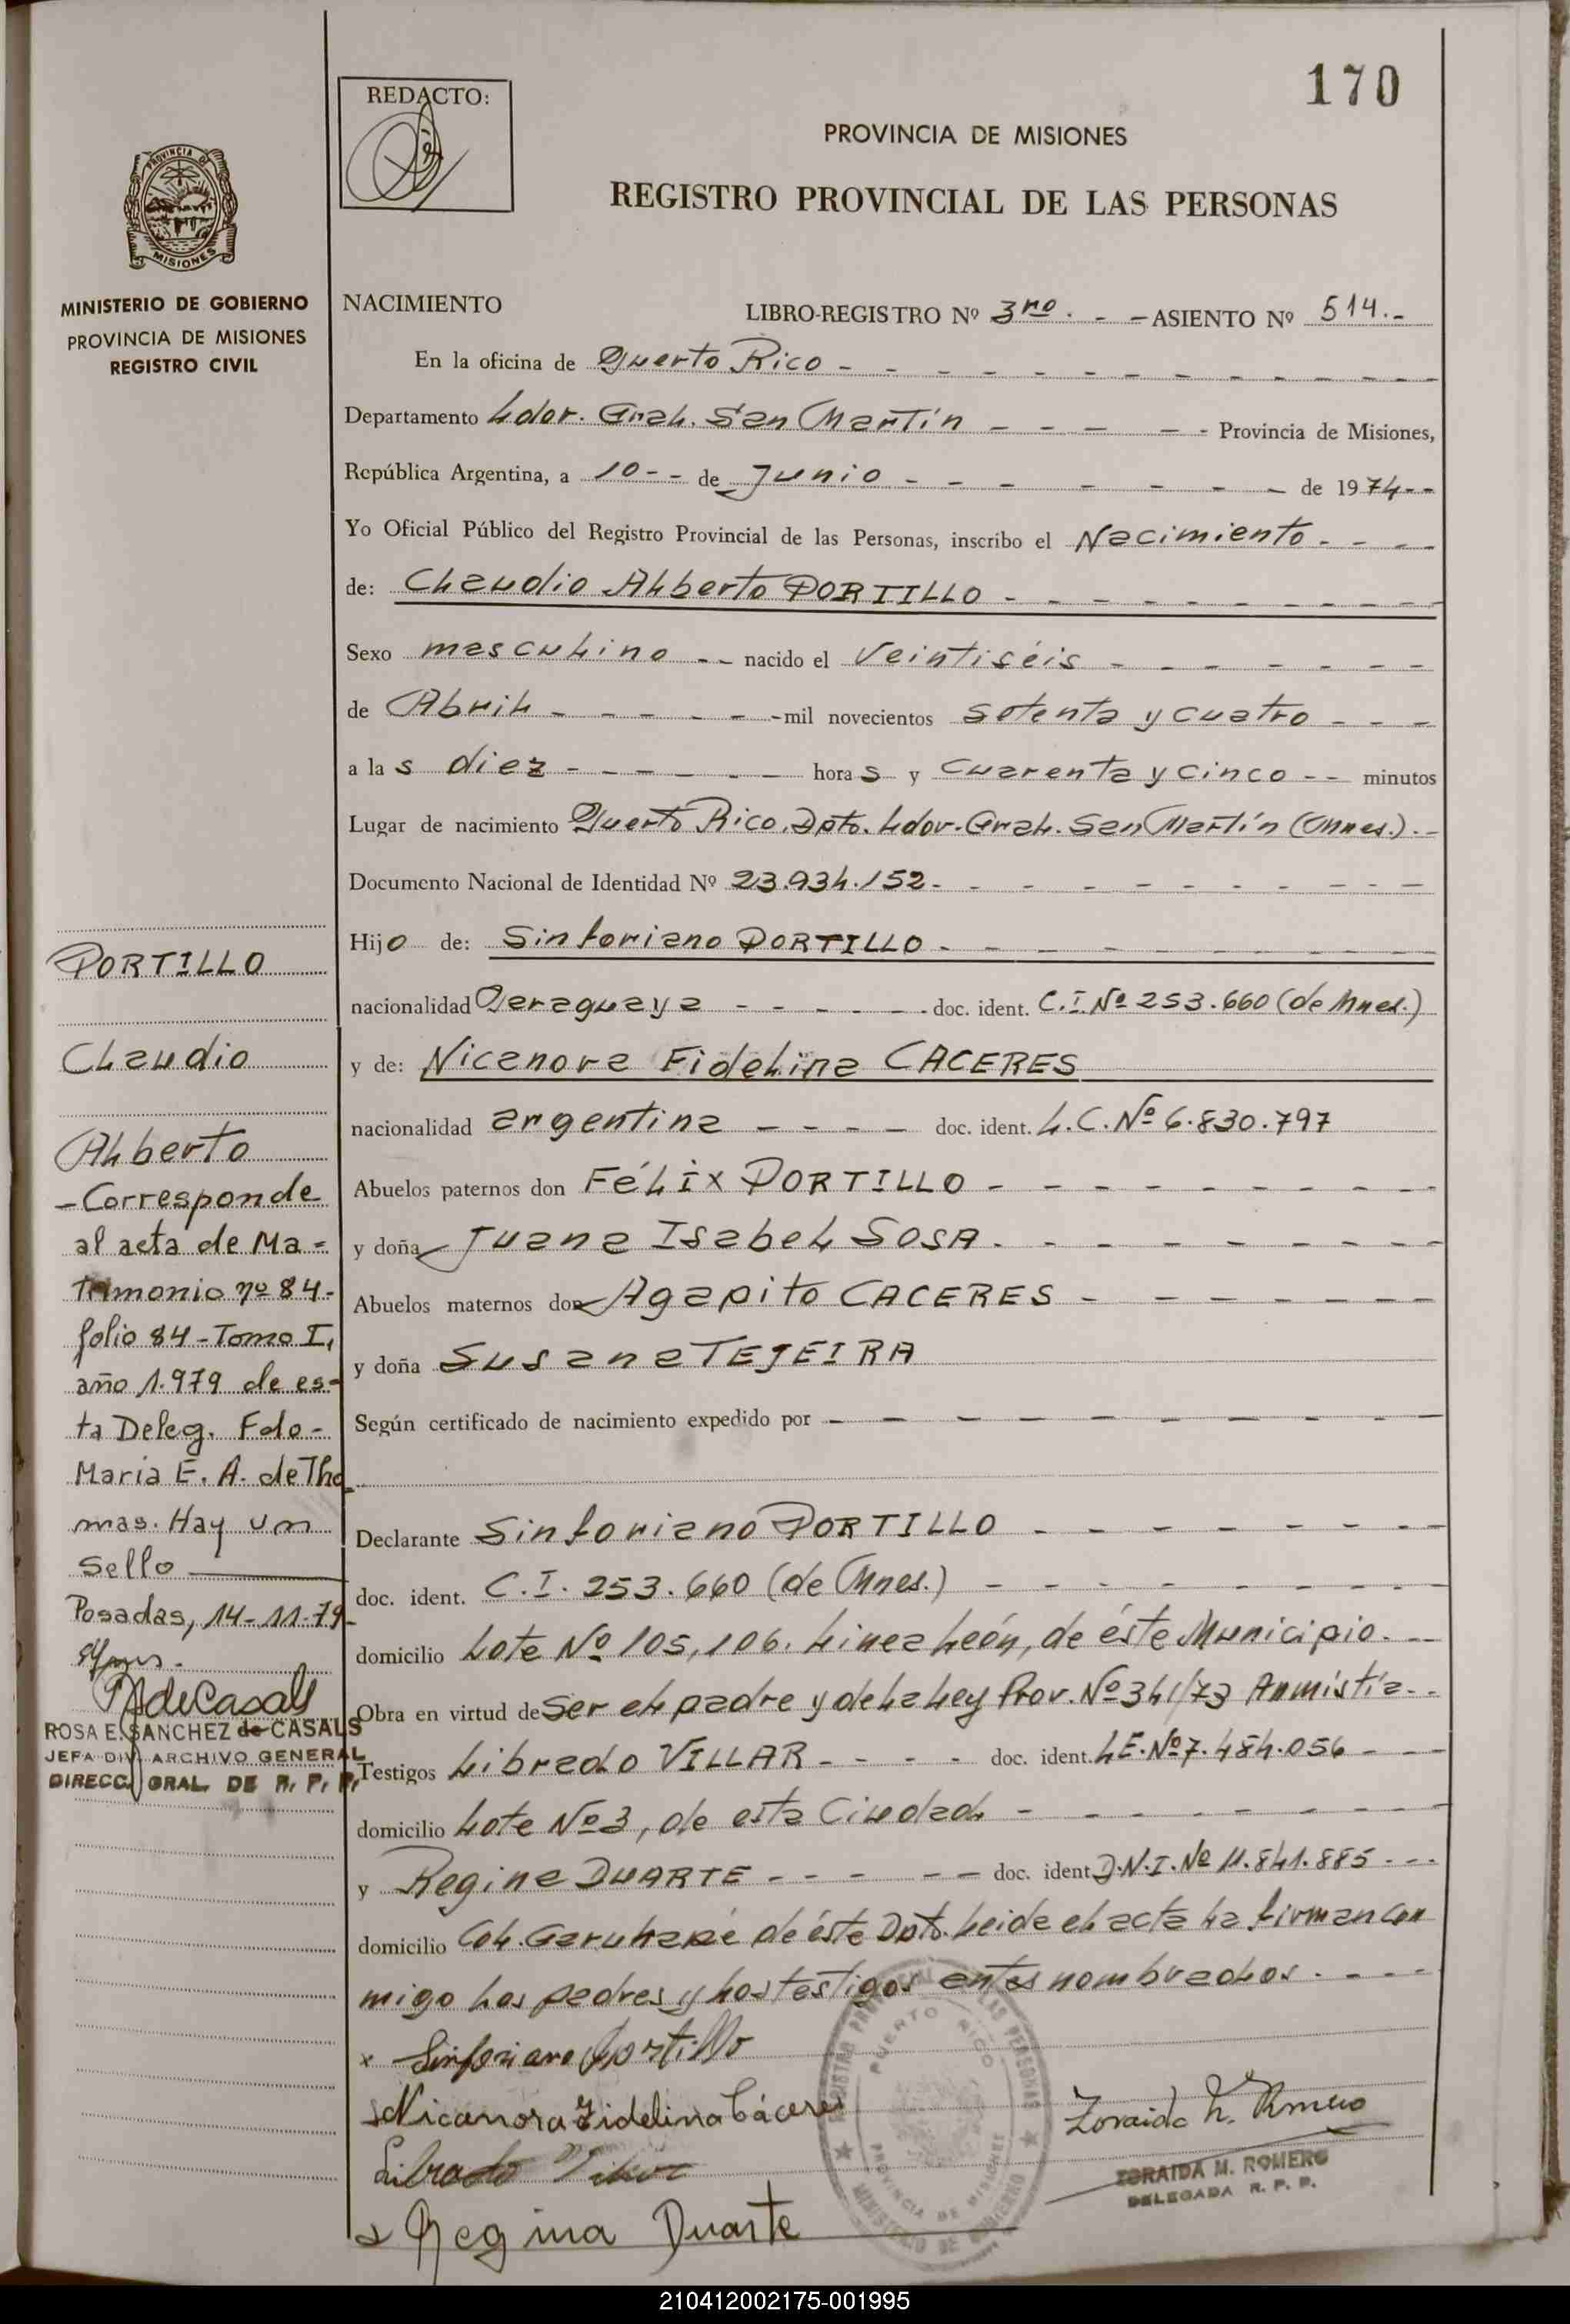 170
REDACTO:
PROVINCIA DE MISIONES
REGISTRO PROVINCIAL DE LAS PERSONAS
PROVINCIA DE
MISIONES
MINISTERIO DE GOBIERNO
PROVINCIA DE MISIONES
REGISTRO CIVIL
NACIMIENTO
LIBRO-REGISTRO Nº 3ro. - - ASIENTO Nº 514.-
En la oficina de Puerto Rico - - - - - - - - - - - -
Departamento Ldor. Gral. San Martín - - - - - Provincia de Misiones,
República Argentina, a 10 - - de Junio - - - - - - - de 1974 - -
Yo Oficial Público del Registro Provincial de las Personas, inscribo el Nacimiento - - - -
de: Claudio Alberto PORTILLO - - - - - - - - - -
Sexo masculino - - nacido el Veintiséis - - - - - - -
de Abril - - - - - - mil novecientos setenta y cuatro - - -
a las diez - - - - - - horas y cuarenta y cinco - - minutos
Lugar de nacimiento Puerto Rico, Dpto. Ldor. Gral. San Martín (Mnes.).-
Documento Nacional de Identidad Nº 23.934.152 - - - - - - - - - -
Hijo de: Sinforiano PORTILLO - - - - - - - - -
nacionalidad Paraguaya - - - - - - doc. ident. C.I. Nº 253.660 (de Mnes.)
y de: Nicanora Fidelina CACERES
nacionalidad argentina - - - - doc. ident. L.C. Nº 6.830.797
Abuelos paternos don Félix PORTILLO - - - - - - - - -
y doña Juana Isabel SOSA - - - - - - - - -
Abuelos maternos don Agapito CACERES - - - - - - - -
y doña Susana TEJEIRA
Según certificado de nacimiento expedido por - - - - - - - - - -
Declarante Sinforiano PORTILLO - - - - - - - -
doc. ident. C.I. 253.660 (de Mnes.) - - - - - - - -
domicilio Lote Nº 105, 106. Linea León, de éste Municipio. - -
Obra en virtud de Ser el padre y de la Ley Prov. Nº 341/73 Anmistía - -
Testigos Librado VILLAR - - - - doc. ident. LE. Nº 7.484.056 - - -
domicilio Lote Nº 3, de esta Ciudad - - - - - - - -
y Regina DUARTE - - - - - - doc. ident D.N.I. Nº 11.841.885 - - -
domicilio Col. Garuhapé de éste Dpto. Leida el acta la firman con
migo los padres y los testigos antes nombrados. - - - -
x Sinforiano Portillo
Nicanora Fidelina Cáceres
Librado
Regina Duarte
PORTILLO
Claudio
Alberto
- Corresponde
al acta de Ma=
trimonio nº 84-
folio 84 - Tomo I,
año 1.979 de es-
ta Deleg. Fdo-
Maria E. A. de Tho
mas. Hay un
Sello
Posadas, 14-11-79-
de Casals
ROSA E. SANCHEZ de CASALS
JEFA DIV. ARCHIVO GENERAL
DIRECC. GRAL. DE R. P. P.
REGISTRO PROVINCIAL DE LAS PERSONAS
PUERTO RICO
PROVINCIA DE MISIONES
MINISTERIO DE GOBIERNO
Zoraida M. Romero
ZORAIDA M. ROMERO
DELEGADA R. P. P.
210412002175-001995